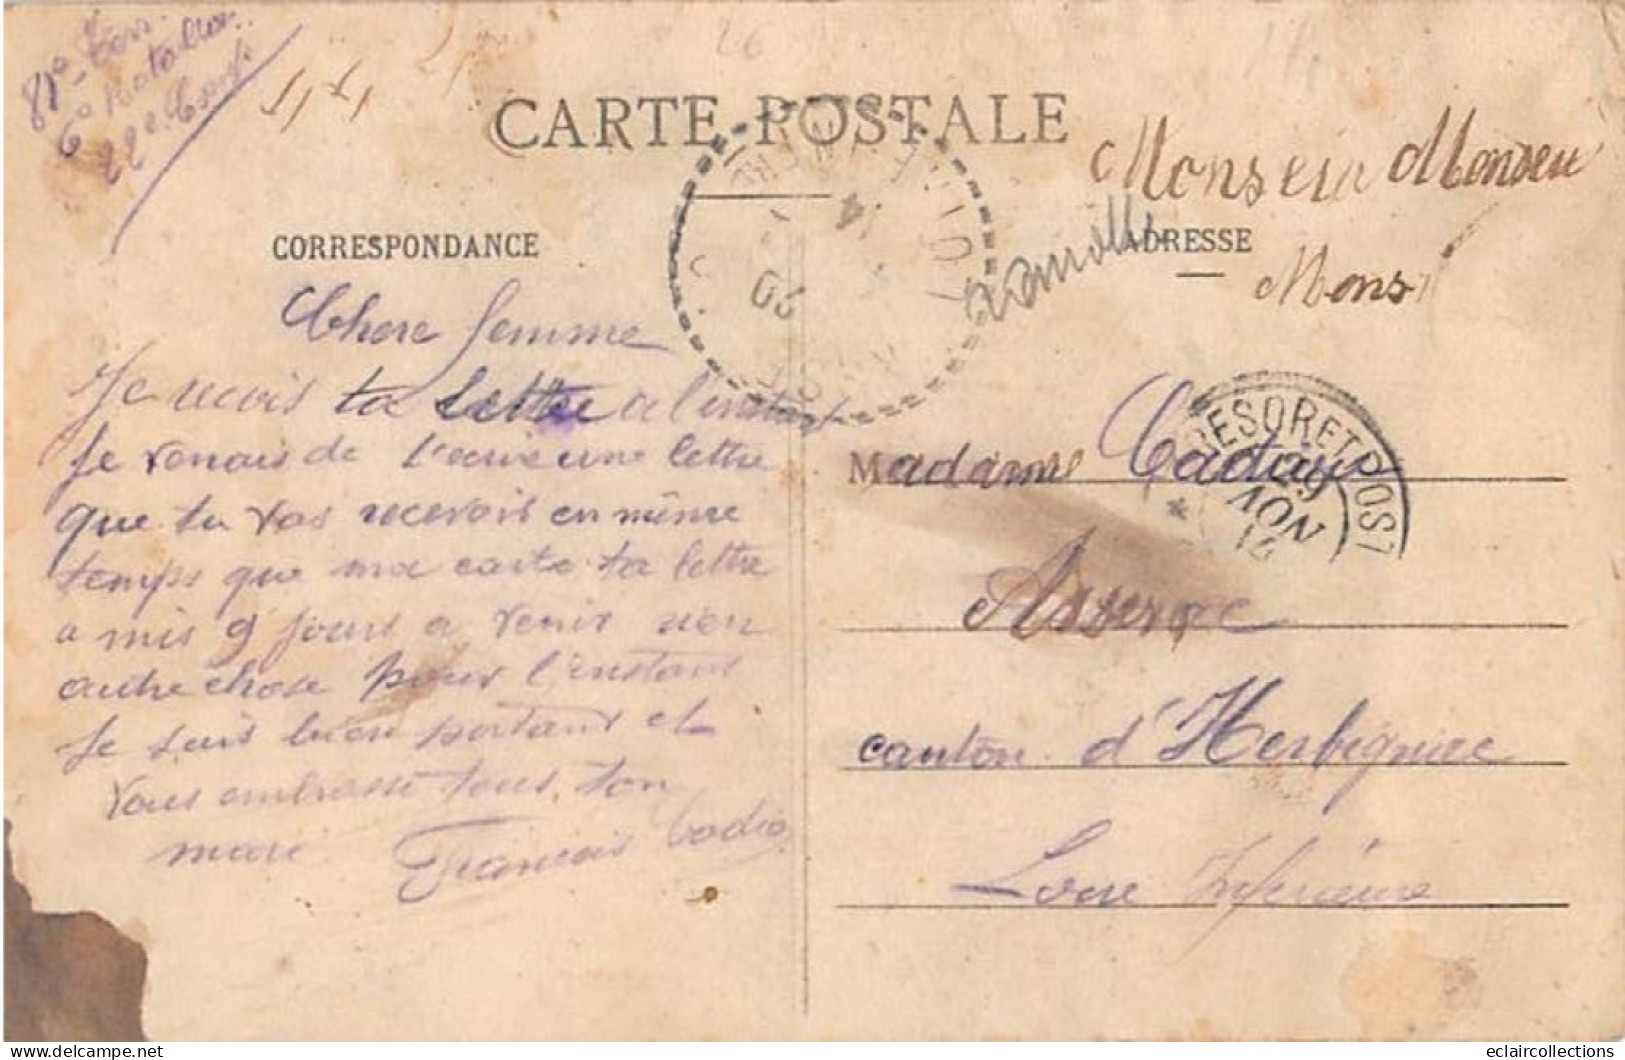 81e Ter.
6e Bataillon.
22e Comp.
CARTE POSTALE
Monseiu Monseiu
CORRESPONDANCE
ADRESSE
Mons
Chere femme
Je recois ta lettre a l'instant
Je venais de t'ecrire une lettre
que tu vas recevoir en même
temps que ma carte ta lettre
a mis 9 jours a venir rien
autre chose pour l'instant
Je suis bien portant et
vous embrasse tous, ton
mari François Cadio
Madame Cadiou
TRESOR ET POSTES
29
NOV
14
20
14
Asserac
canton d'Herbignac
Loire Inférieure
eclaircollections